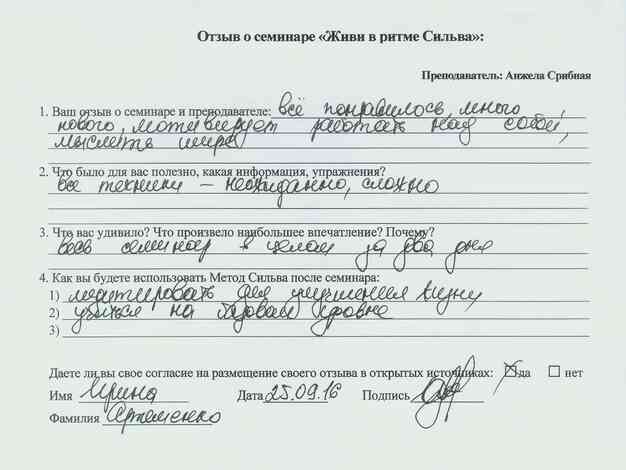 Отзыв о семинаре «Живи в ритме Сильва»:
Преподаватель: Анжела Срибная
1. Ваш отзыв о семинаре и преподавателе: всё понравилось, много
нового, мотивирует работать над собой,
мыслить шире
2. Что было для вас полезно, какая информация, упражнения?
все техники – неожиданно, сложно
3. Что вас удивило? Что произвело наибольшее впечатление? Почему?
весь семинар в целом за два дня
4. Как вы будете использовать Метод Сильва после семинара:
1) медитировать для улучшения жизни
2) учиться на базовом уровне
3)
Даете ли вы свое согласие на размещение своего отзыва в открытых источниках: да нет
Имя Ирина Дата 25.09.16 Подпись
Фамилия Артеменко